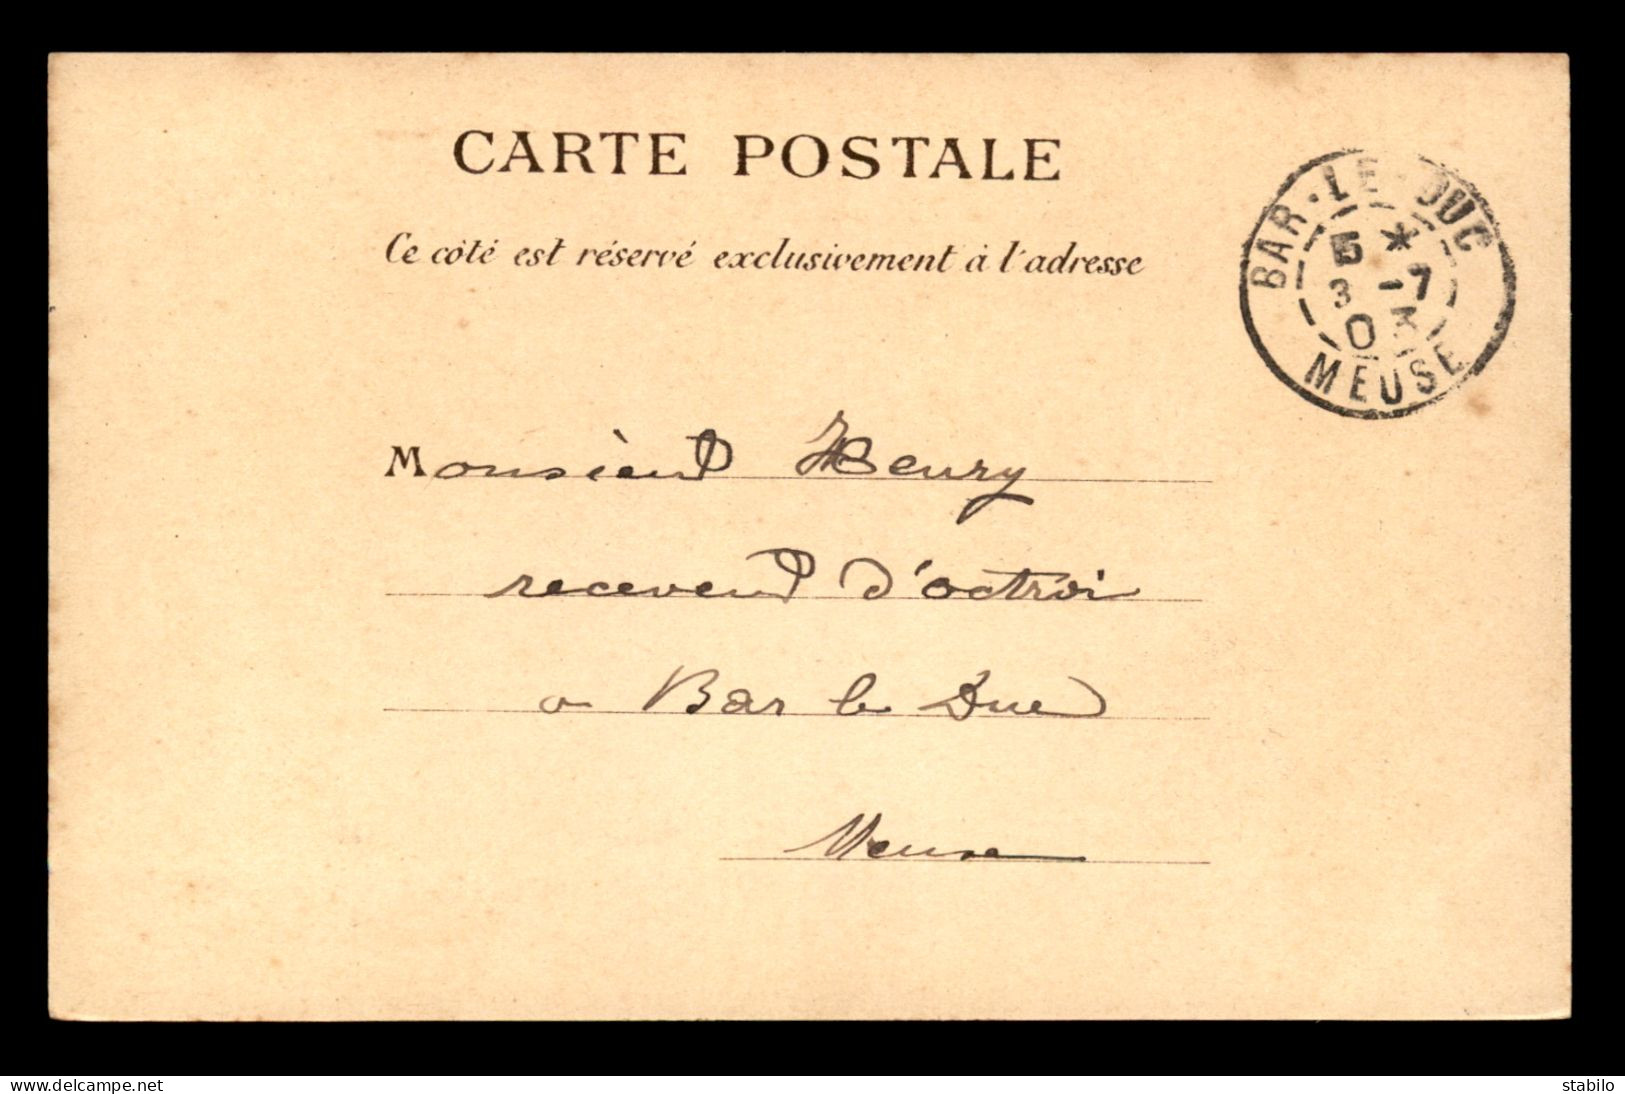 CARTE POSTALE
Ce côté est réservé exclusivement à l'adresse
BAR-LE-DUC
5 *
3 -7
03
MEUSE
Monsieur Henry
receveur d'octroi
a Bar le Duc
Meuse
delcampe.net
stabilo